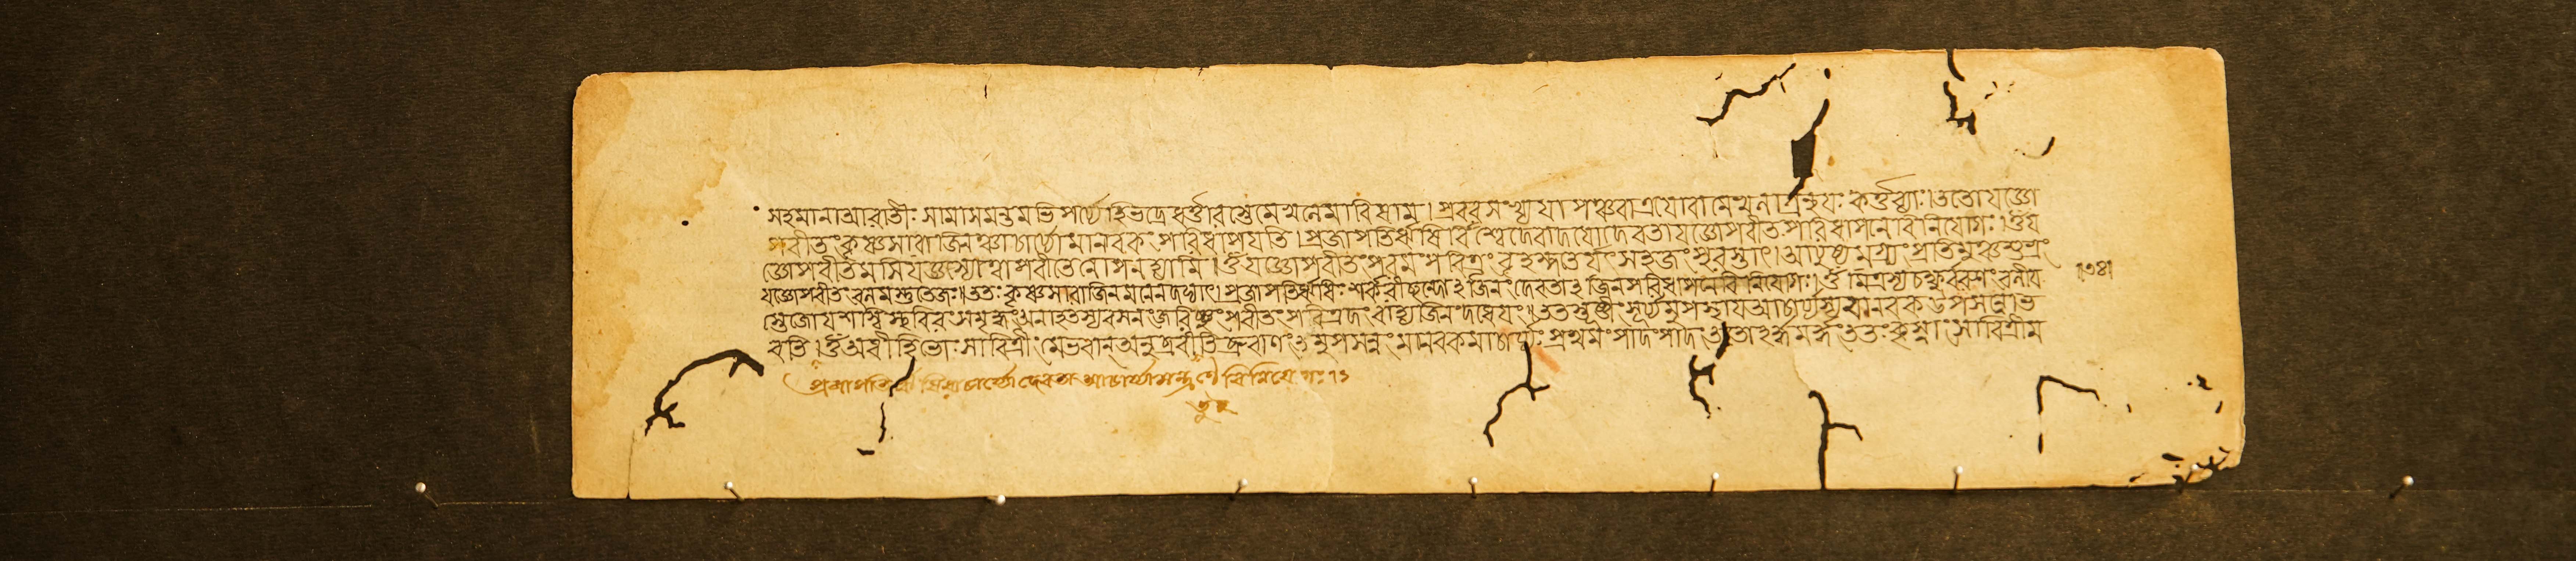 সহমানাআরাতীঃ সামাসমন্তমভিপর্য্যেহিভদ্রেহর্ত্তারস্তেমেখলেমারিষাম। প্রবরসংখ্যযাপঞ্চবাত্রযোবামেখলাগ্রন্থযঃ কর্ত্তব্যাঃ। ততোযজ্ঞো
পবীতংকৃষ্ণসারাজিনঞ্চাচার্য্যোমানবকং পরিধাপযতি। প্রজাপতির্ঋষির্বিশ্বেদেবাদযোদেবতাযজ্ঞোপবীত পরিধাপনেবিনিযোগঃ।ওঁয
জ্ঞোপবীতমসিযজ্ঞস্যত্বোপবীতেনোপনহ্যামি। ওঁযজ্ঞোপবীতংপরমং পবিত্রং বৃহস্পতের্যৎ সহজং পুরস্তাৎ। আযুষ্যমগ্র্যং প্রতিমুঞ্চশুভ্রং
যজ্ঞোপবীতং বলমস্তুতেজঃ।ততঃ কৃষ্ণসারাজিনমনেনদদ্যাৎ। প্রজাপতির্ঋষিঃ শক্বরীছন্দোঽজিনং দেবতাঽজিনপরিধাপনেবিনিযোগঃ। ওঁ মিত্রস্যচক্ষুর্ধরুণং বলীয
স্তেজোযশস্বিস্থবিরং সমৃদ্ধং অনাহতস্যবসনং জরিষ্ণুং পবীতং পবিত্রদং বাহ্যজিনং দধেযং। ততস্তূষ্ণীং সূর্য্যমুপস্থাযআচার্য্যস্যমানবক উপসন্নোভ
বতি। ওঁঅধীহিভোঃ সাবিত্রীং মেভবান্অনুব্রবীত্বিতিব্রুবাণং তমুপসন্নং মানবকমাচার্য্যঃ প্রথমং পাদংপাদং ততোঽর্দ্ধমর্দ্ধং ততঃ কৃৎস্নাং সাবিত্রীম
প্রজাপতির্ঋষিরাচার্য্যোদেবতা আচার্য্যামন্ত্রণে বিনিযোগঃ
।৩৪।